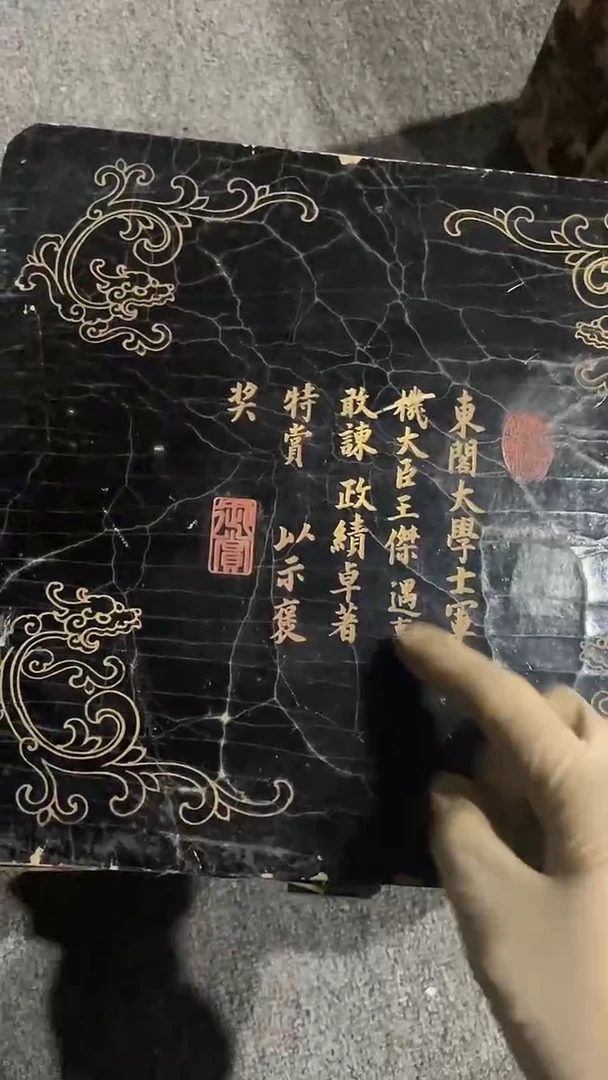 東閣大學士軍
機大臣王傑 遇事
敢諫 政績卓著
特賞 以示褒
奖
御賞